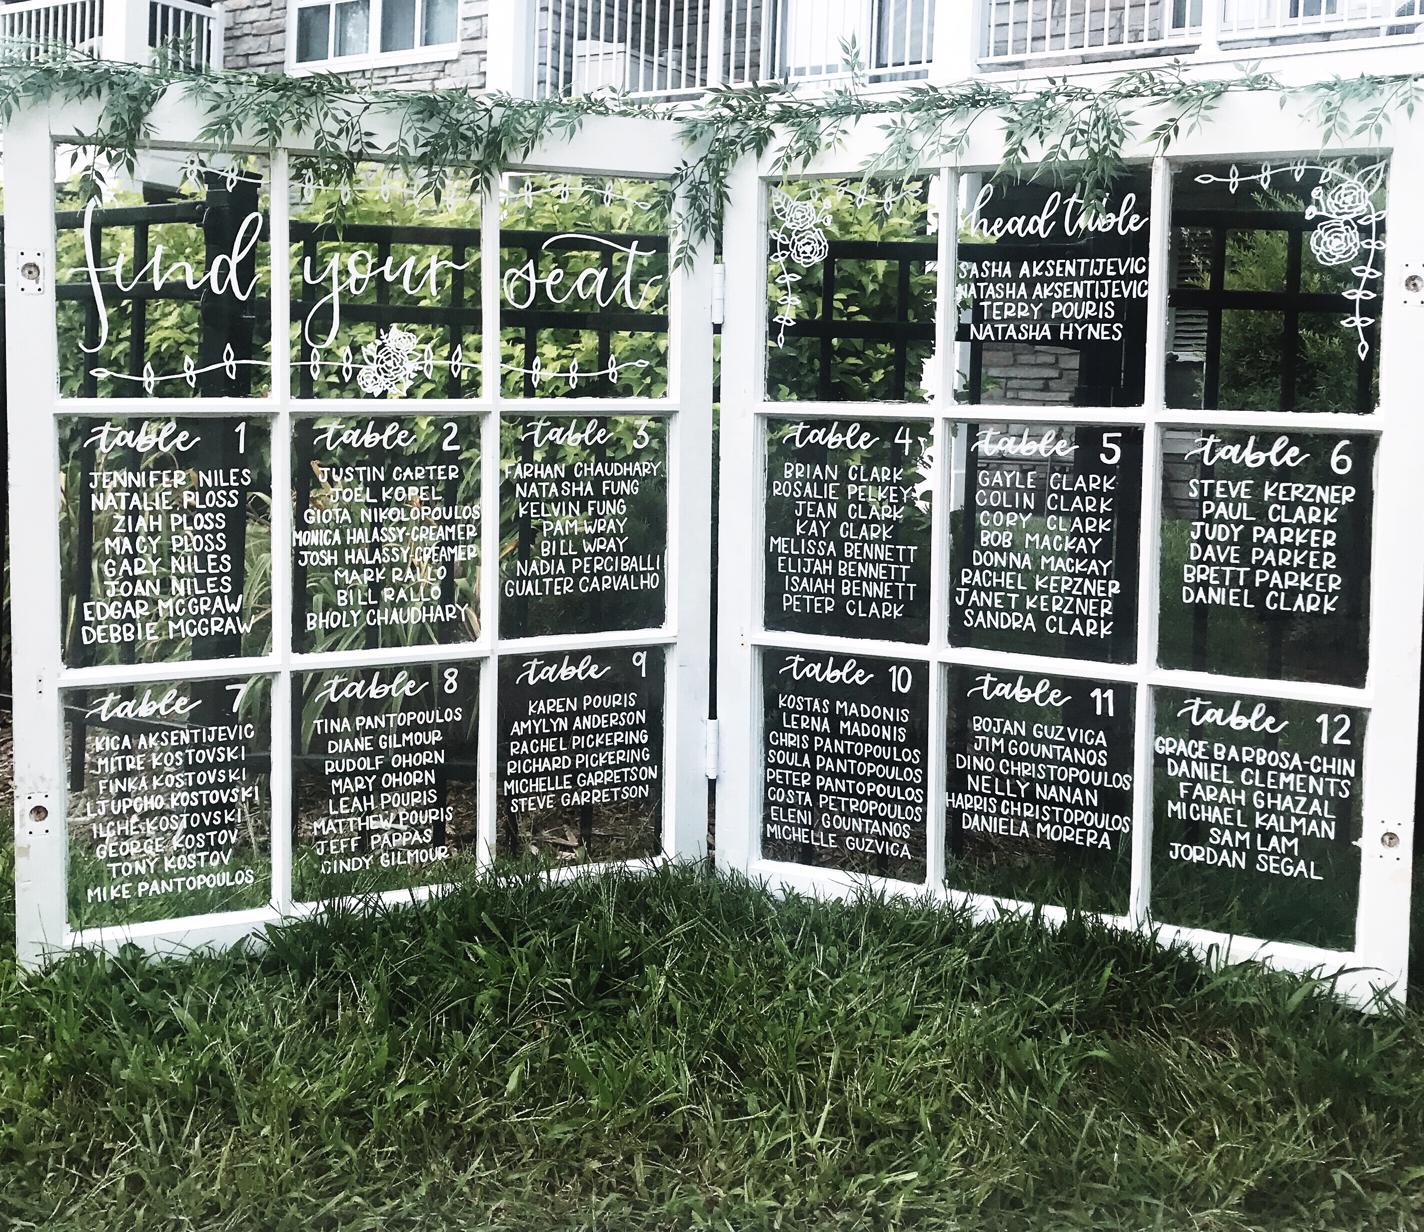 find your seat
head table
SASHA AKSENTIJEVIC
NATASHA AKSENTIJEVIC
TERRY POURIS
NATASHA HYNES
table 1
JENNIFER NILES
NATALIE PLOSS
ZIAH PLOSS
MACY PLOSS
GARY NILES
JOAN NILES
EDGAR MCGRAW
DEBBIE MCGRAW
table 2
JUSTIN CARTER
JOEL KOPEL
GIOTA NIKOLOPOULOS
MONICA HALASSY-CREAMER
JOSH HALASSY-CREAMER
MARK RALLO
BILL RALLO
BHOLY CHAUDHARY
table 3
FARHAN CHAUDHARY
NATASHA FUNG
KELVIN FUNG
PAM WRAY
BILL WRAY
NADIA PERCIBALLI
GUALTER CARVALHO
table 4
BRIAN CLARK
ROSALIE PELKEY
JEAN CLARK
KAY CLARK
MELISSA BENNETT
ELIJAH BENNETT
ISAIAH BENNETT
PETER CLARK
table 5
GAYLE CLARK
COLIN CLARK
CORY CLARK
BOB MACKAY
DONNA MACKAY
RACHEL KERZNER
JANET KERZNER
SANDRA CLARK
table 6
STEVE KERZNER
PAUL CLARK
JUDY PARKER
DAVE PARKER
BRETT PARKER
DANIEL CLARK
table 7
KICA AKSENTIJEVIC
MITRE KOSTOVSKI
FINKA KOSTOVSKI
LJUPCHO KOSTOVSKI
ILCHE KOSTOVSKI
GEORGE KOSTOV
TONY KOSTOV
MIKE PANTOPOULOS
table 8
TINA PANTOPOULOS
DIANE GILMOUR
RUDOLF OHORN
MARY OHORN
LEAH POURIS
MATTHEW POURIS
JEFF PAPPAS
CINDY GILMOUR
table 9
KAREN POURIS
AMYLYN ANDERSON
RACHEL PICKERING
RICHARD PICKERING
MICHELLE GARRETSON
STEVE GARRETSON
table 10
KOSTAS MADONIS
LERNA MADONIS
CHRIS PANTOPOULOS
SOULA PANTOPOULOS
PETER PANTOPOULOS
COSTA PETROPOULOS
ELENI GOUNTANOS
MICHELLE GUZVICA
table 11
BOJAN GUZVICA
JIM GOUNTANOS
DINO CHRISTOPOULOS
NELLY NANAN
HARRIS CHRISTOPOULOS
DANIELA MORERA
table 12
GRACE BARBOSA-CHIN
DANIEL CLEMENTS
FARAH GHAZAL
MICHAEL KALMAN
SAM LAM
JORDAN SEGAL